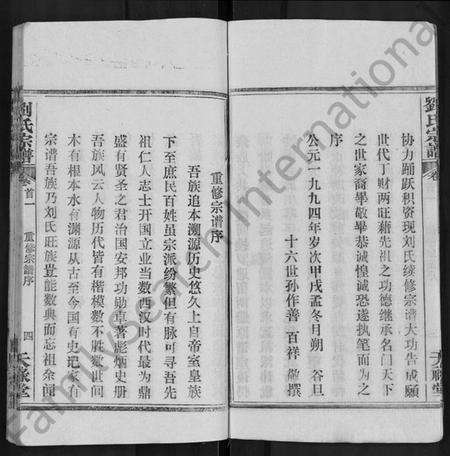 劉氏宗譜
卷
协力踊跃积资现刘氏续修宗谱大功告成愿
世代丁财两旺藉先祖之功德继承名门天下
之世家裔毕敬毕恭诚惶诚恐遂执笔而为之
序
公元一九九四年岁次甲戌孟冬月朔 谷旦
十六世孙作善 百祥 撰
重修宗谱序
吾族追本溯源历史悠久上皇帝室皇族
下至庶民百姓虽宗派纷繁但有脉可寻吾先
祖仁人志士开国立业当数西汉时代最为鼎
盛有贤圣之君治国安邦功勋卓著彪炳史册
吾族风云人物历代皆有楷模数不胜数世间
木有根本水有渊源从古至今国有史记家有
宗谱吾族乃刘氏旺族岂能数典而忘祖余闻
劉氏宗譜
卷首一
重修宗谱序
四
FamilySearch International